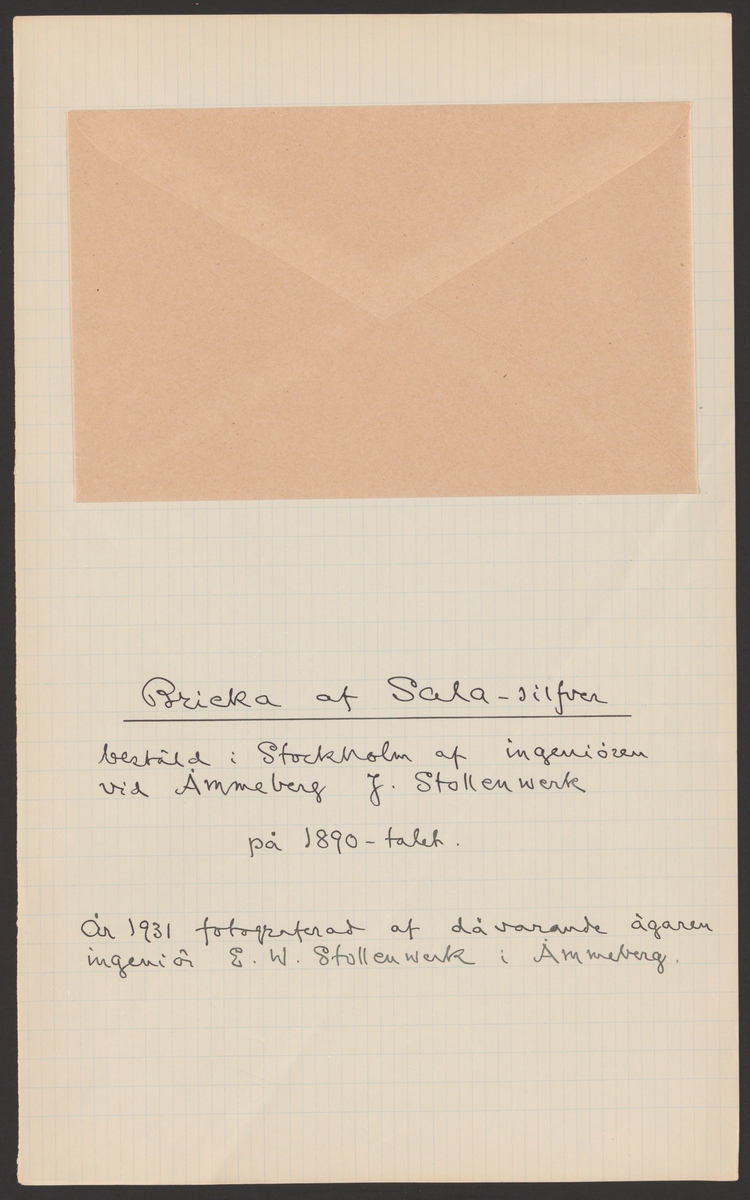 Bricka af Sala-silfver
beställd i Stockholm af ingeniören
vid Åmmeberg J. Stollenwerk
på 1890-talet.
År 1931 fotograferad af dåvarande ägaren
ingeniör E. W. Stollenwerk i Åmmeberg.